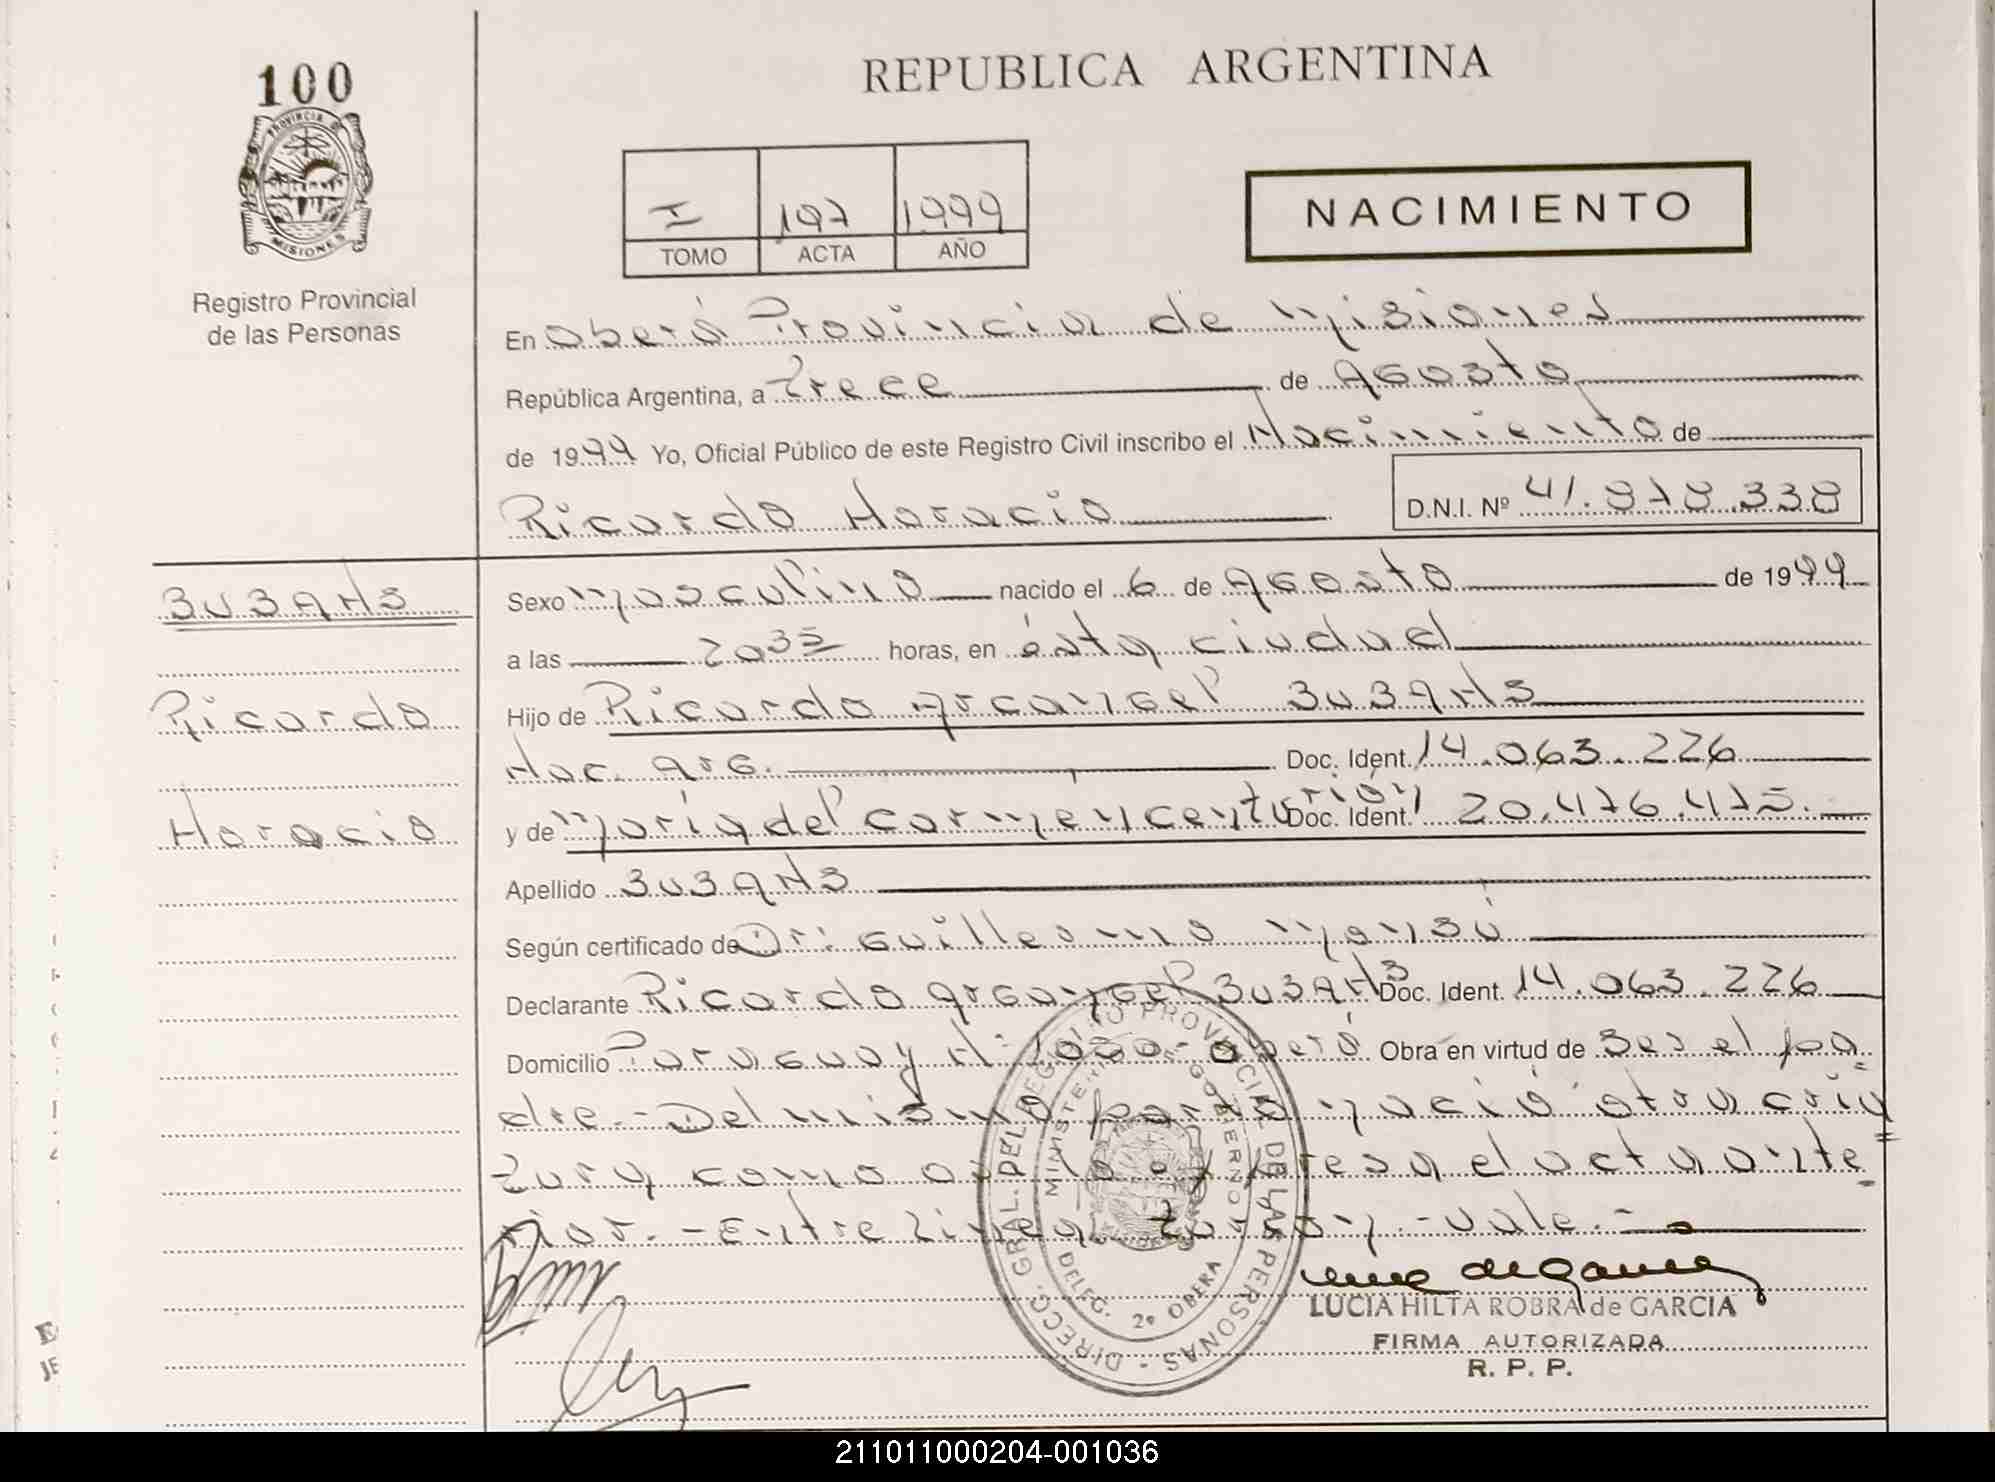 100
PROVINCIA DE
MISIONES
Registro Provincial
de las Personas
REPUBLICA ARGENTINA
I 197 1999
TOMO ACTA AÑO
NACIMIENTO
En Oberá Provincia de Misiones
República Argentina, a Trece de Agosto
de 1999 Yo, Oficial Público de este Registro Civil inscribo el Nacimiento de
Ricardo Horacio D.N.I. Nº 41.878.338
Sexo Masculino nacido el 6 de Agosto de 1999
a las 20 35 horas, en ésta ciudad
Hijo de Ricardo Arcangel
Nac. Arg. Doc. Ident. 14.063.226
y de María del Carmen Centurión Doc. Ident. 20.476.475.
Apellido
Según certificado de Dr: Guillermo Monzú
Declarante Ricardo Arcangel Doc. Ident. 14.063.226
Domicilio Paraguay Nº 1080- Oberá Obra en virtud de Ser el pa=
dre.-Del mismo parto nació otra cria=
tura como así lo expresa el acta ante_
rior.-Entre lineas: turion.-vale.-
Ricardo
Horacio
DIRECC. GRAL. DEL REGISTRO PROVINCIAL DE LAS PERSONAS -
MINISTERIO DE GOBIERNO
DELEG. 2º OBERA
LUCIA HILTA ROBRA de GARCIA
FIRMA AUTORIZADA
R. P. P.
211011000204-001036